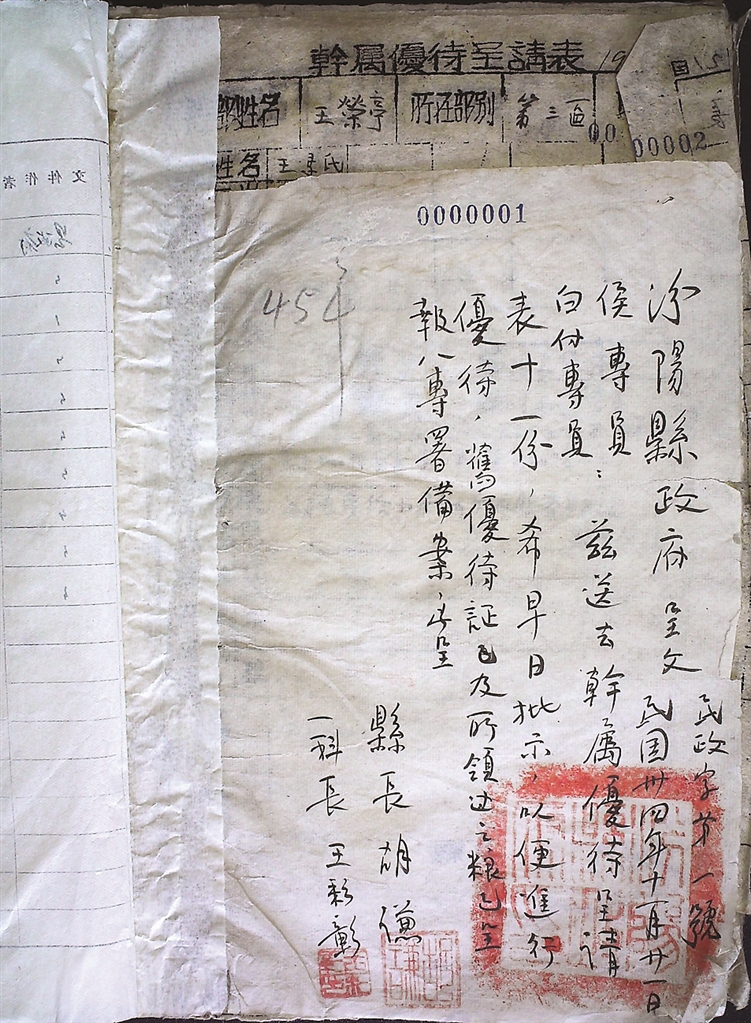 幹属優待呈請表
姓名 王榮亭 所在部別 第三區
姓名 王 氏
00 00002
0000001
454
汾陽縣政府呈文
民政字第一號
民国卅四年十一月廿一日
侯專員:
白付專員 茲送去幹屬優待呈請
表十一份,希早日批示,以便進行
優待,舊優待証已及所領过之粮已呈
報八專署備案,此呈
縣長胡謙
一科長王彰
文件作者